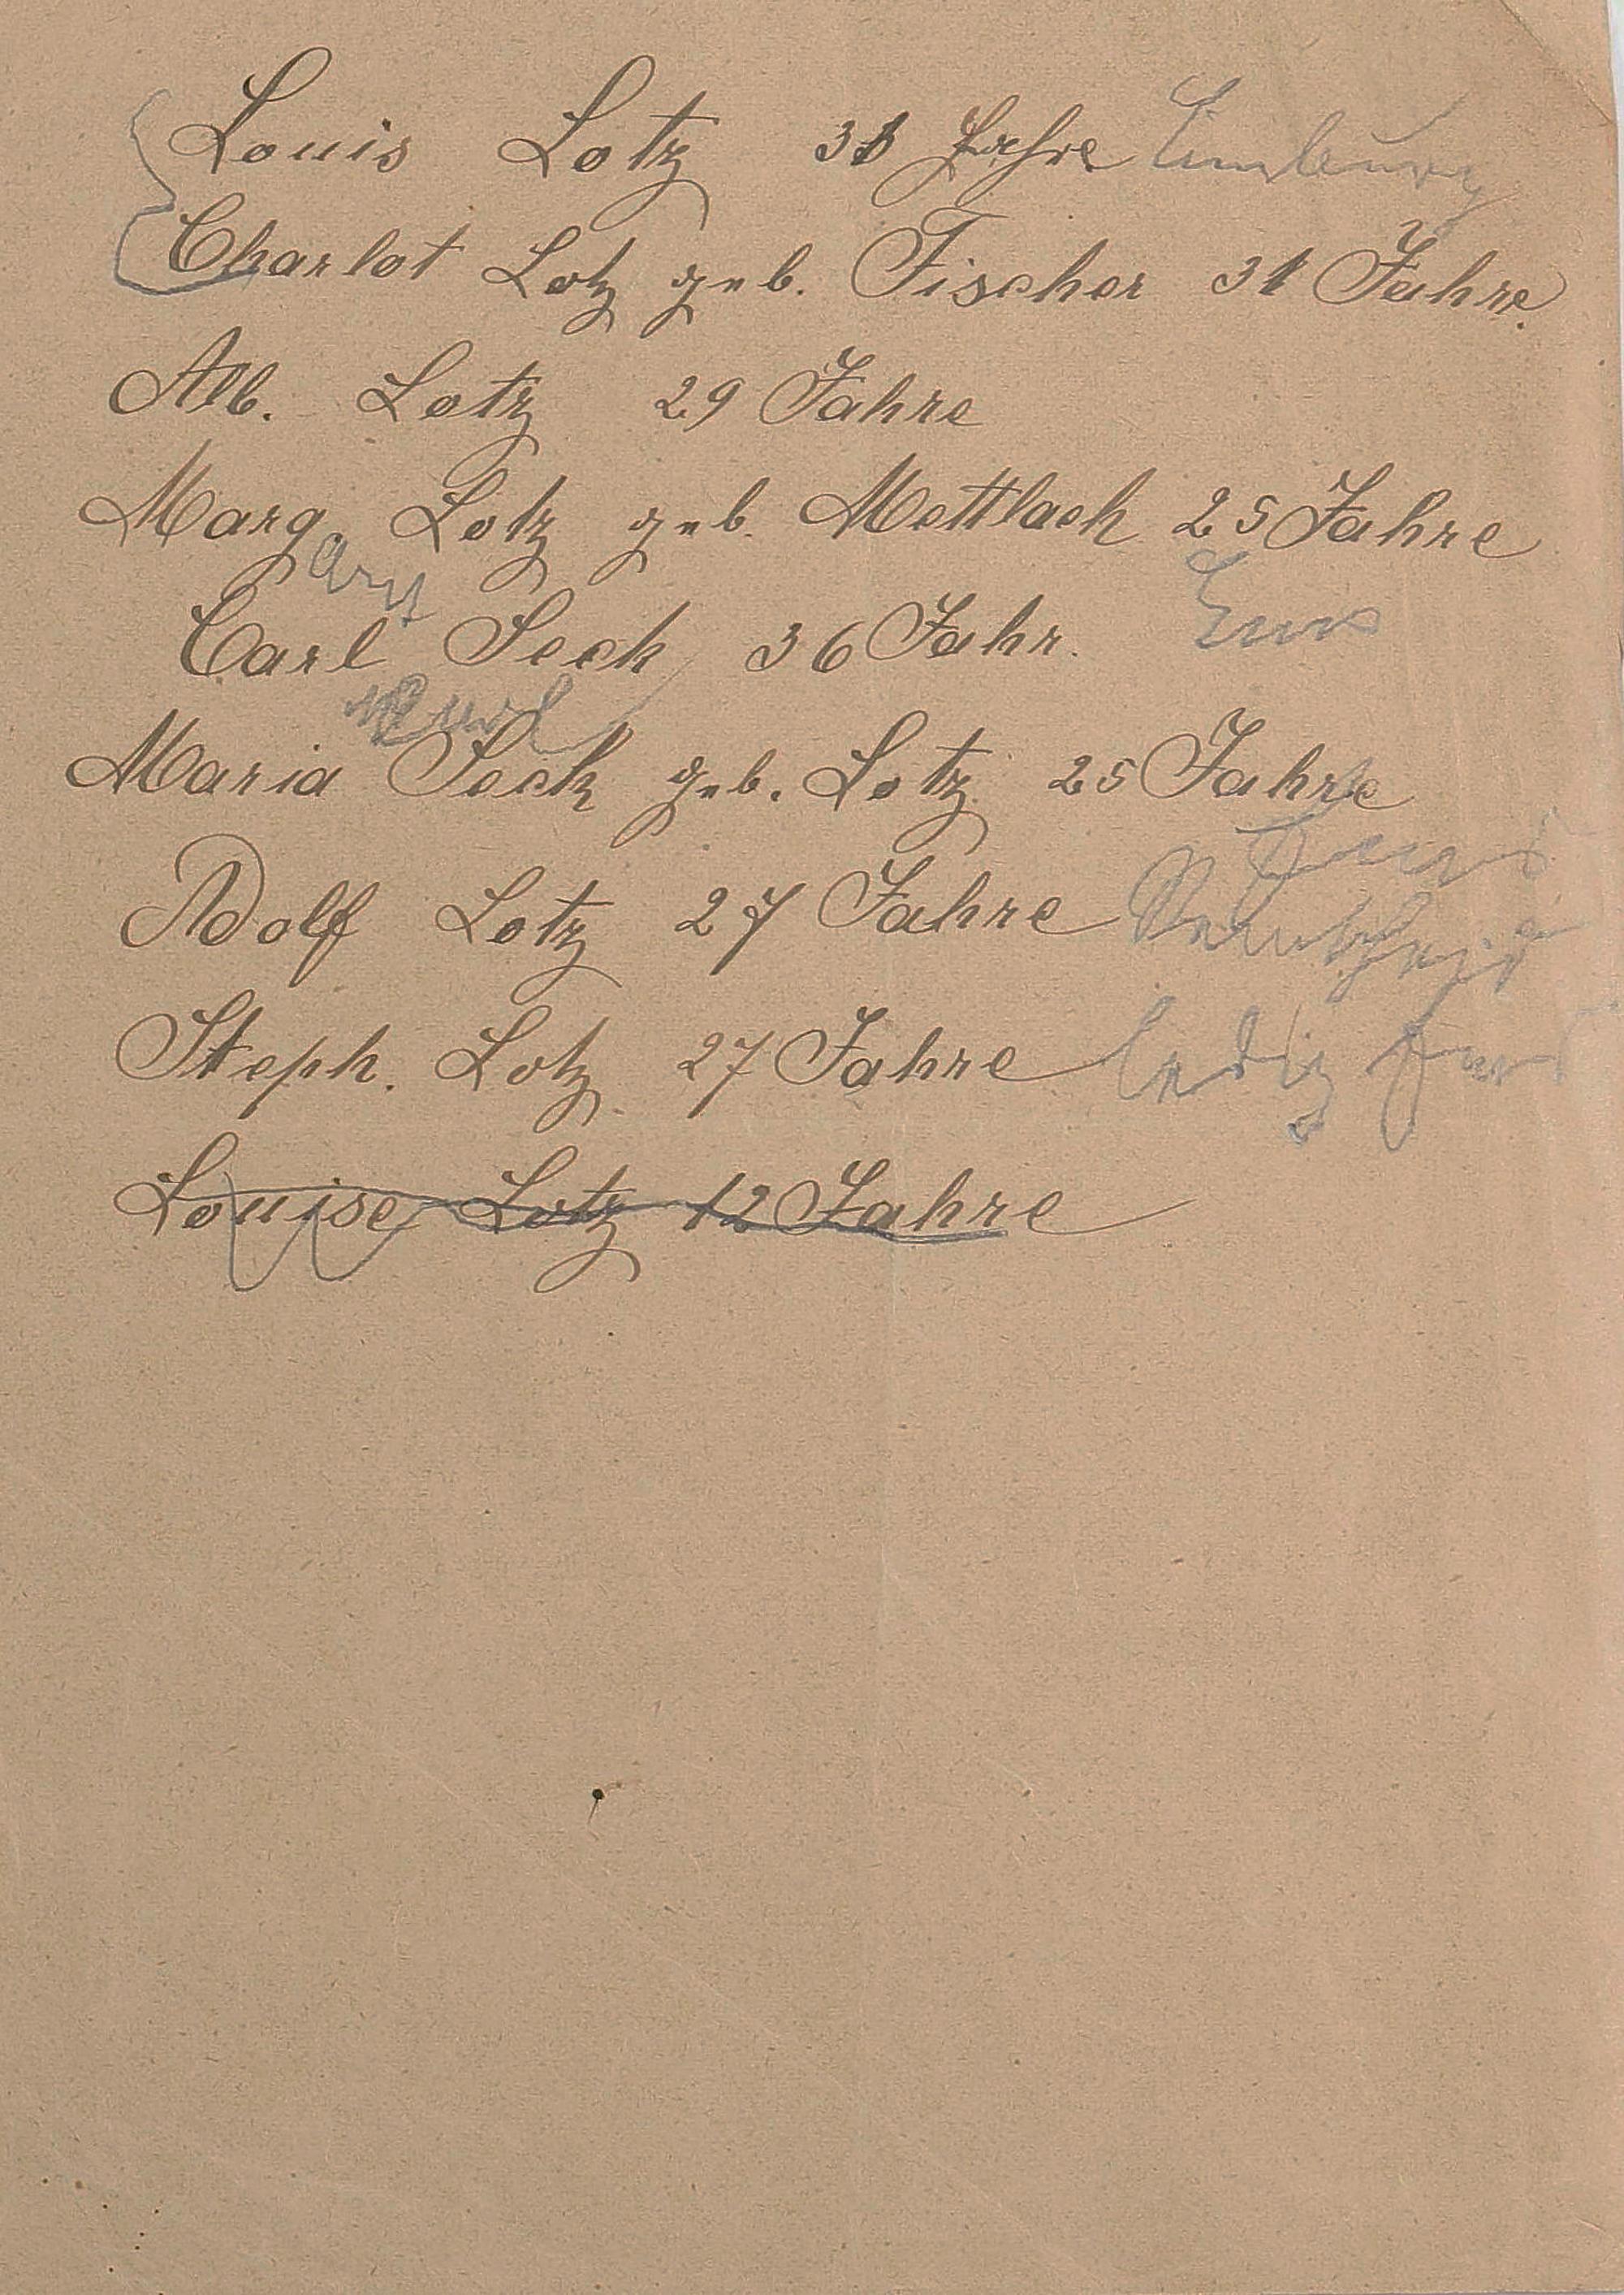 Louis Lotz 31 Jahre Limburg
Charlot Lotz geb. Fischer 31 Jahre.
Alb. Lotz 29 Jahre
Marg. Lotz geb. Mettlach 25 Jahre
Carl Seck 36 Jahr. Ems
Maria Seck geb. Lotz 25 Jahre
Adolf Lotz 27 Jahre
Steph. Lotz 27 Jahre ledig
Louise Lotz 12 Jahre